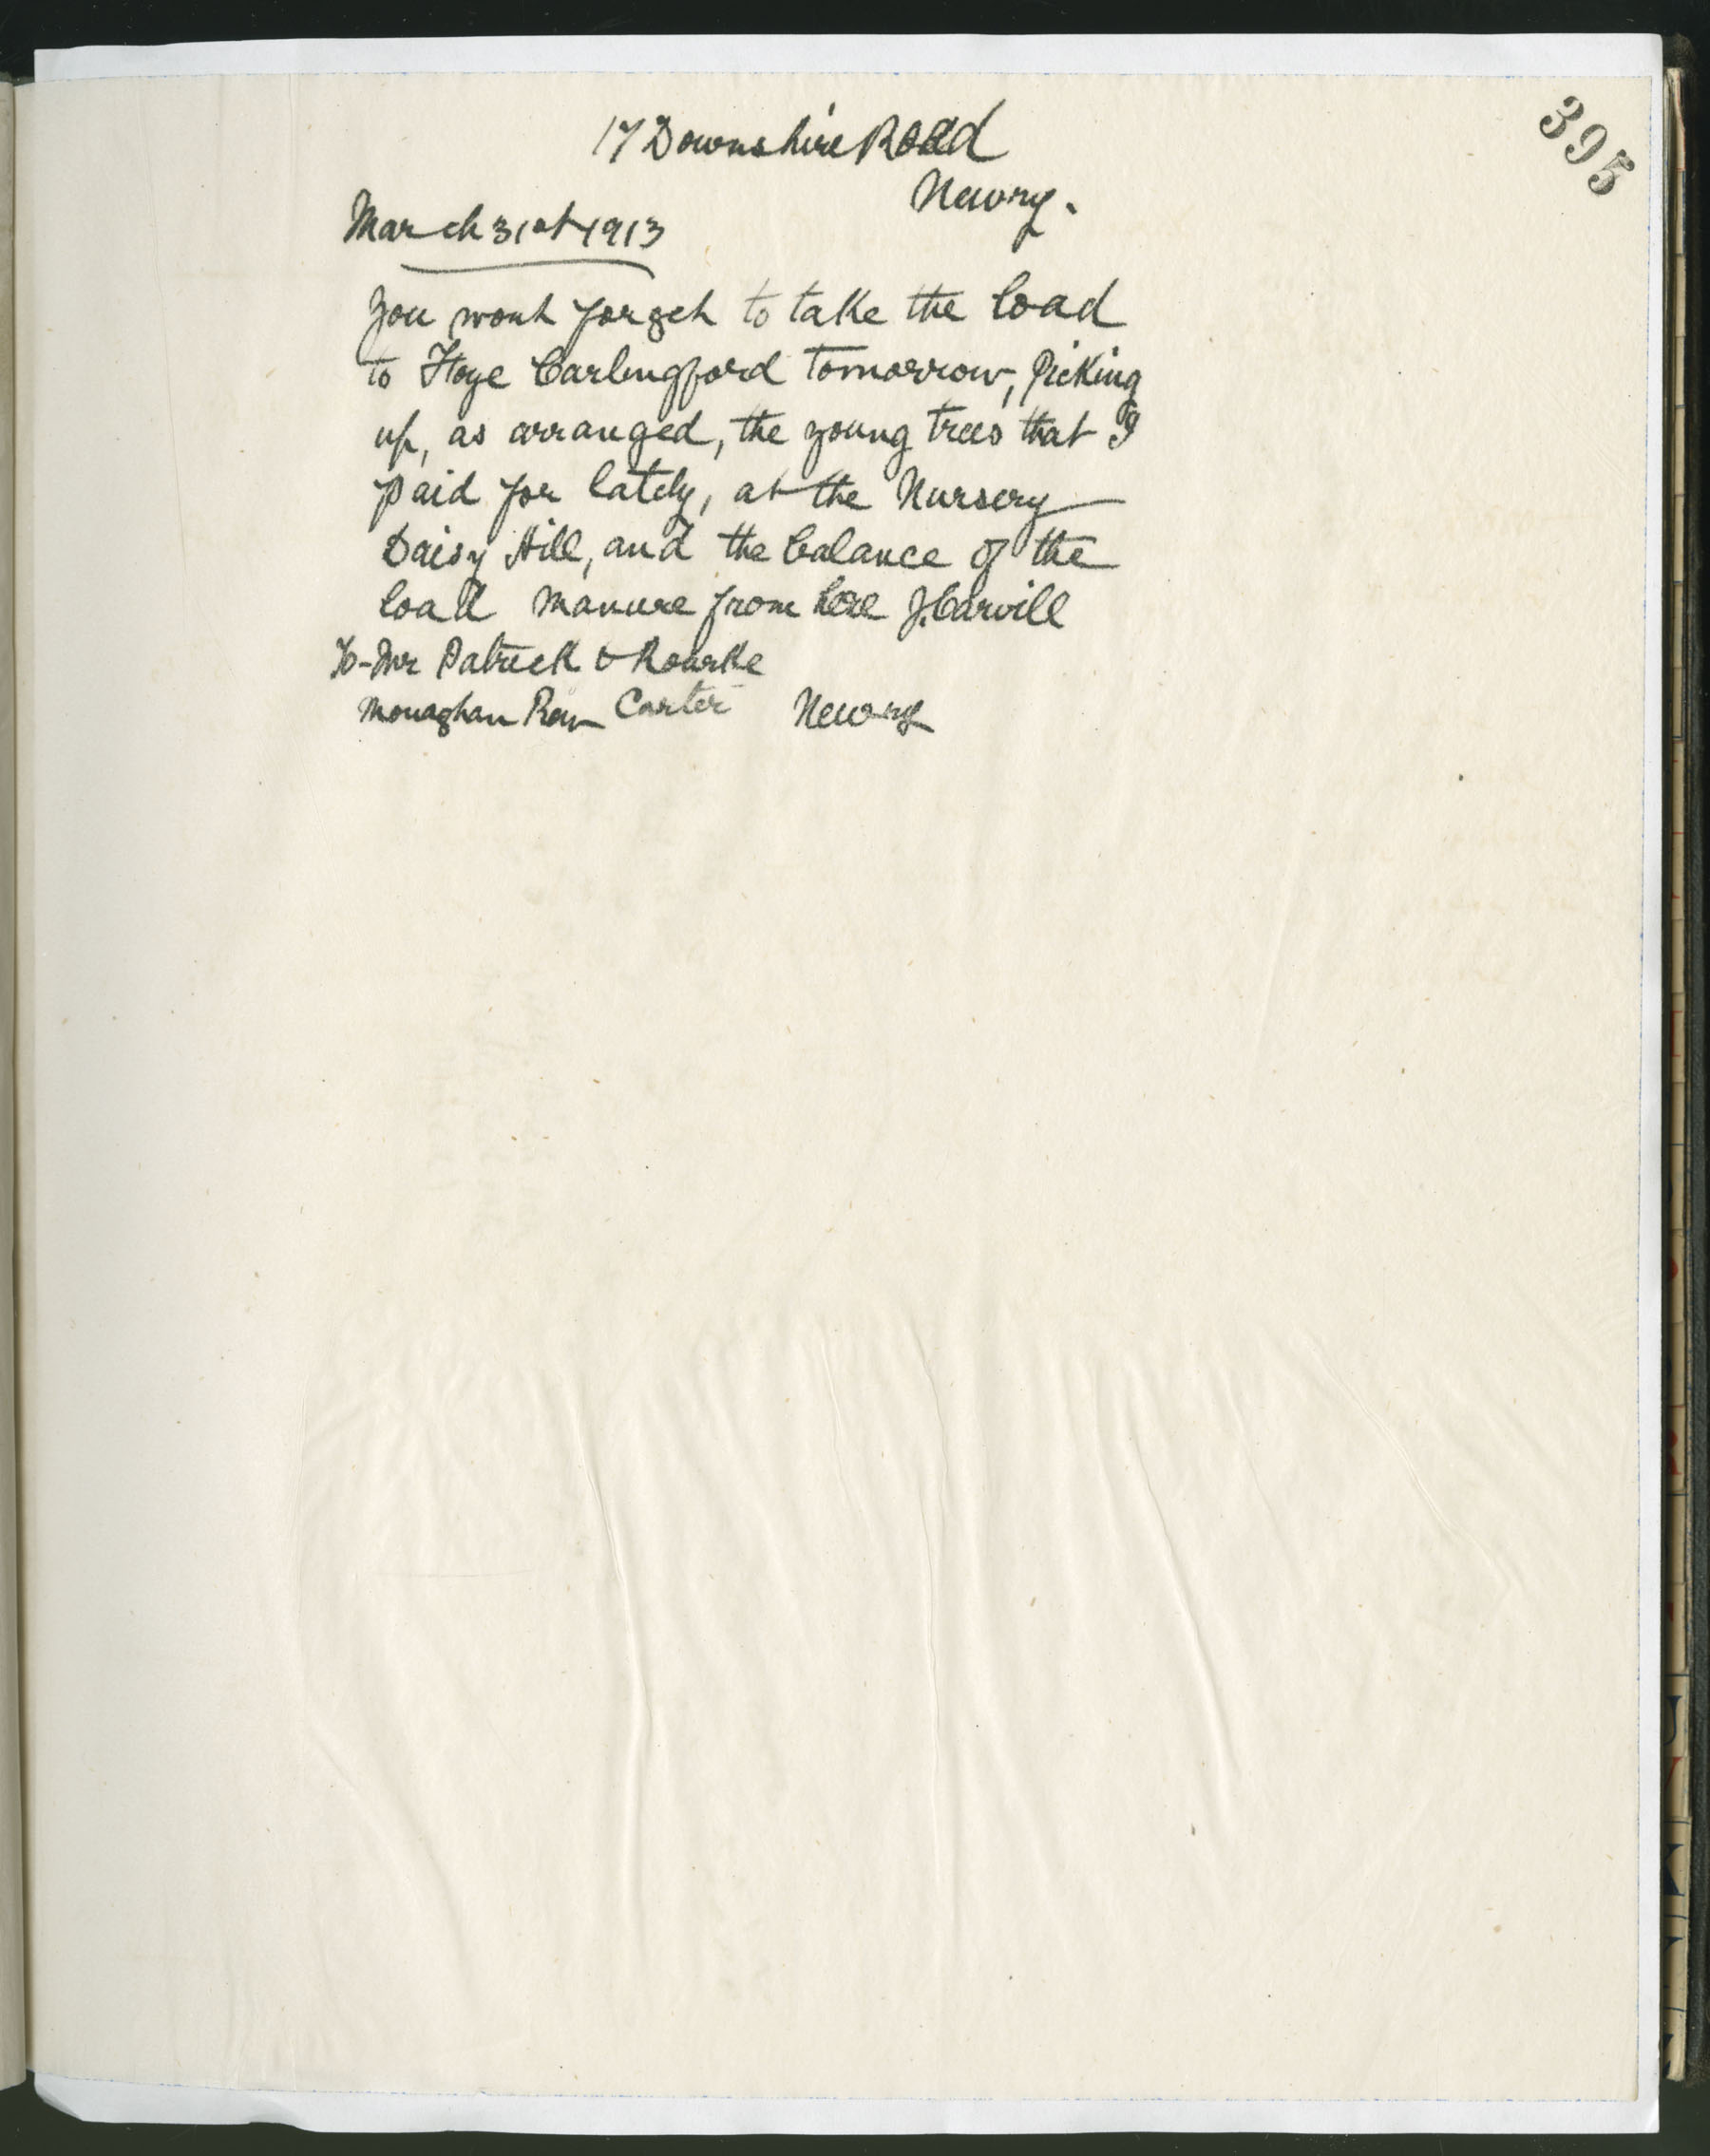 395
17 Downshire Road
Newry.
March 31st 1913
You wont forget to take the load
to Carlingford tomorrow, Picking
up, as arranged, the young trees that I
paid for lately, at the Nursery
Daisy Hill, and the balance of the
load manure from here J. Carvill
To-Mr Patrick O Rourke
Monaghan Row Carter Newry